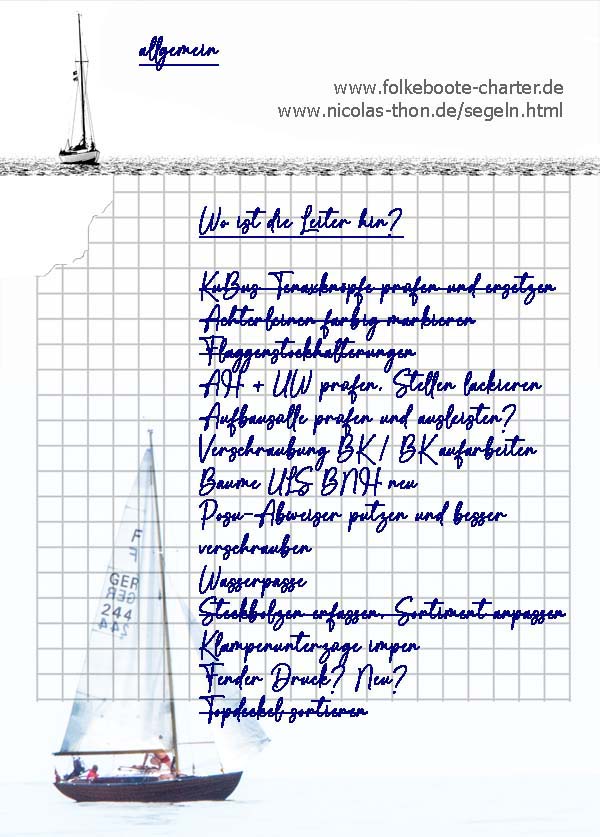 allgemein
www.folkeboote-charter.de
www.nicolas-thon.de/segeln.html
Wo ist die Leiter hin?
KuBus Tenaxknöpfe prüfen und ersetzen
Achterleinen farbig markieren
Flaggenstockhalterungen
AH + UW prüfen, Stellen lackieren
Aufbausülle prüfen und ausleisten?
Verschraubung BK / BK aufarbeiten
Bäume ULS BNH neu
Posu-Abweiser putzen und besser
verschrauben
Wasserpässe
Steckbolzen erfassen, Sortiment anpassen
Klampenunterzüge impen
Fender Druck? Neu?
Topdeckel sortieren
F
GER
244